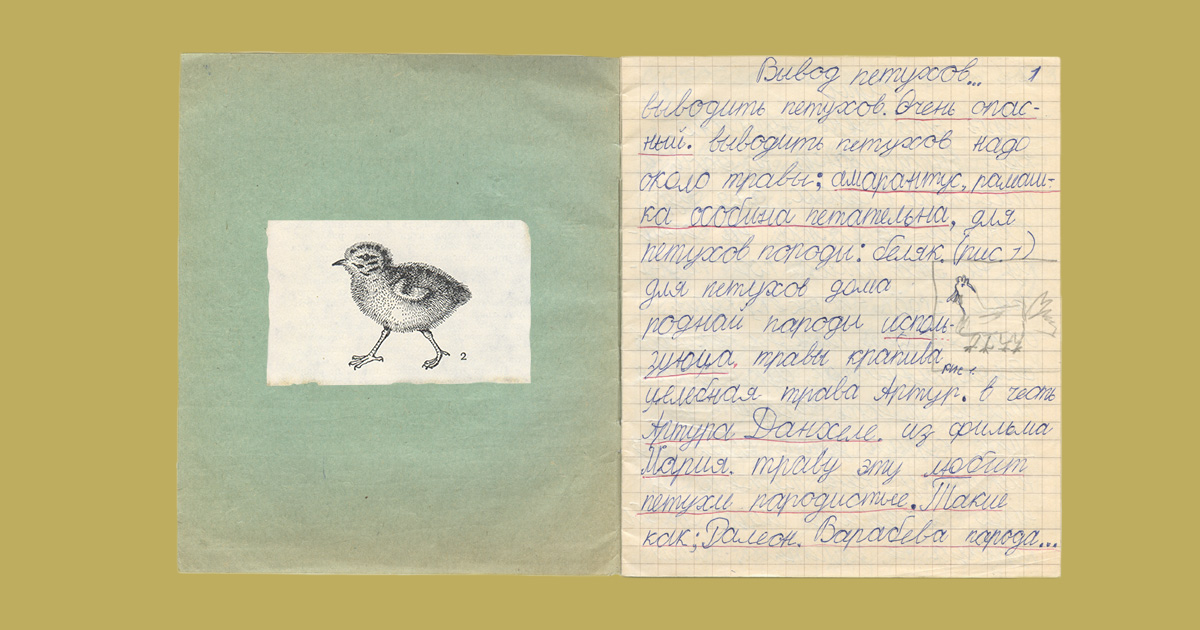 2
Вывод петухов... 1
выводить петухов. Очень опас-
ный. выводить петухов надо
около травы; амарантус, рамаш-
ка особина петательна, для
петухов породы: беляк. (рис. 1)
для петухов дома
родной породы испол-
зуюца. травы крапива
рис 1.
целебная трава Артур. в честь
Артура Данхеле. из фильма
Мария. траву эту любит
петухи пародистые. Такие
как; Далеон. Варабева парода...